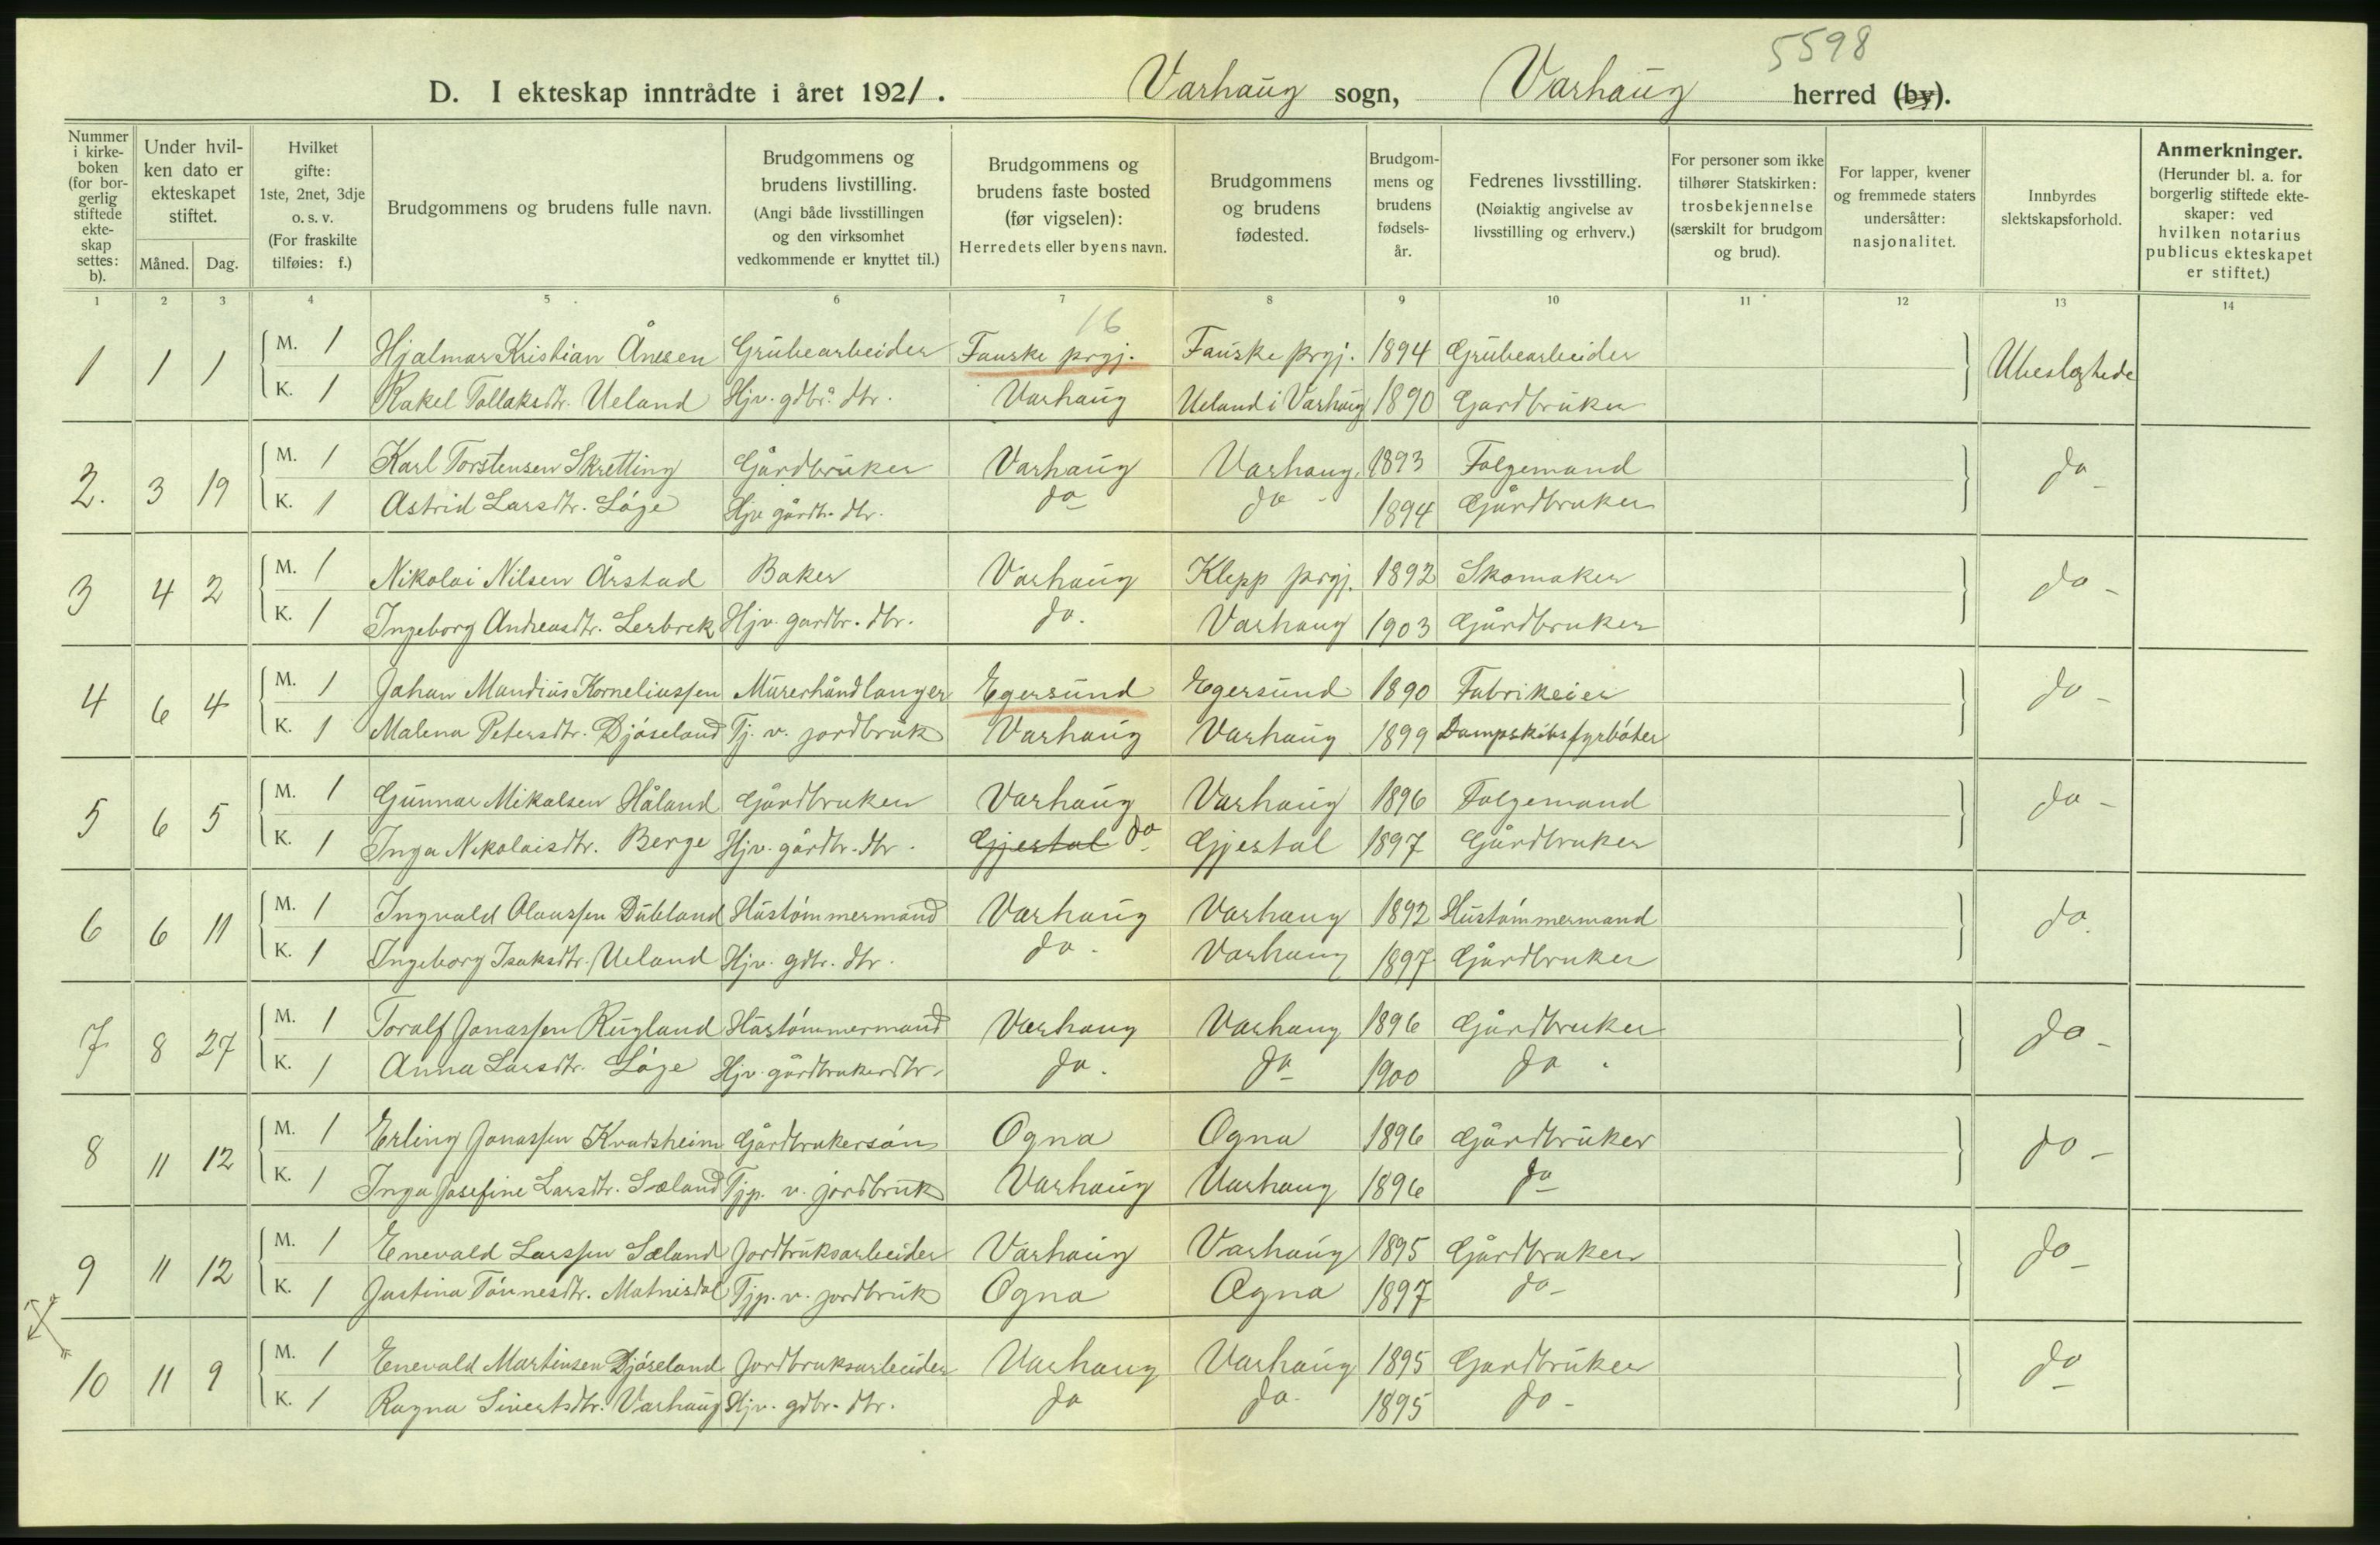 5598
D. I ekteskap inntrådte i året 1921. Varhaug sogn, Varhaug herred (by).
Nummer i kirke-boken (for bor-gerlig stiftede ekte-skap settes: b).
Under hvil-ken dato er ekteskapet stiftet.
Måned. Dag.
Hvilket gifte: 1ste, 2net, 3dje o. s. v. (For fraskilte tilføies: f.)
Brudgommens og brudens fulle navn.
Brudgommens og brudens livstilling. (Angi både livsstillingen og den virksomhet vedkommende er knyttet til.)
Brudgommens og brudens faste bosted (før vigselen): Herredets eller byens navn.
Brudgommens og brudens fødested.
Brudgom-mens og brudens fødsels-år.
Fedrenes livsstilling. (Nøiaktig angivelse av livsstilling og erhverv.)
For personer som ikke tilhører Statskirken: trosbekjennelse (særskilt for brudgom og brud).
For lapper, kvener og fremmede staters undersåtter: nasjonalitet.
Innbyrdes slektskapsforhold.
Anmerkninger. (Herunder bl. a. for borgerlig stiftede ekte-skaper: ved hvilken notarius publicus ekteskapet er stiftet.)
1 2 3 4 5 6 7 8 9 10 11 12 13 14
16
1 1 1 M. 1 Hjalmar Kristian Ånesen Grubearbeider Fauske prgj. Fauske prgj. 1894 Grubearbeider Ubeslegtede
K. 1 Rakel Tollaksdtr. Ueland Hjv. gdbr. dtr. Varhaug Ueland i Varhaug 1890 Gardbruker
2. 3 19 M. 1 Karl Torstensen Skretting Gårdbruker Varhaug Varhaug. 1893 Folgemand do
K. 1 Astrid Larsdtr. Løge Hjv gårdb. dtr. do do - 1894 Gårdbruker
3 4 2 M. 1 Nikolai Nilsen Årstad Baker Varhaug Klepp prgj. 1892 Skomaker do -
K. 1 Ingeborg Andreasdtr. Lerbrek Hjv. gardbr. dtr. do. Varhaug 1903 Gårdbruker
4 6 4 M. 1 Johan Mandius Korneliussen Murerhåndlanger Egersund Egersund 1890 Fabrikeier do -
K. 1 Malena Petersdtr. Djøseland Tj. v. jordbruk Varhaug Varhaug 1899 Dampskibsfyrbøter
5 6 5 M. 1 Gunnar Mikalsen Håland Gårdbruker Varhaug Varhaug 1896 Folgemand do -
K. 1 Inga Nikolaisdtr. Berge Hjv. gårdbr. dtr. Gjestal do Gjestal 1897 Gårdbruker
6 6 11 M. 1 Ingvald Olaussen Dubland Hustømmermand Varhaug Varhaug 1892 Hustømmermand do.
K. 1 Ingeborg Isaksdtr. Ueland Hjv. gdbr. dtr. do - Varhaug 1897 Gårdbruker
7 8 27 M. 1 Toralf Jonassen Rugland Hustømmermand Varhaug Varhaug 1896 Gårdbruker do -
K. 1 Anna Larsdtr. Løge Hjv. gårdbrukerdtr. do. do 1900 do.
8 11 12 M. 1 Erling Jonassen Kvadsheim Gårdbrukersøn Ogna Ogna 1896 Gårdbruker do -
K. 1 Inga Josefine Larsdtr. Sæland Tjp. v. jordbruk Varhaug Varhaug 1896 do
9 11 12 M. 1 Enevald Larssen Sæland Jordbruksarbeider Varhaug Varhaug 1895 Gårdbruker do
K. 1 Justina Tønnesdtr. Matnisdal Tjp. v. jordbruk Ogna Ogna 1897 do -
10 11 9 M. 1 Enevald Martinsen Djøseland Jordbruksarbeider Varhaug Varhaug 1895 Gardbruker do
K. 1 Ragna Sivertsdtr. Varhaug Hjv. gdbr. dtr. do do - 1895 do -